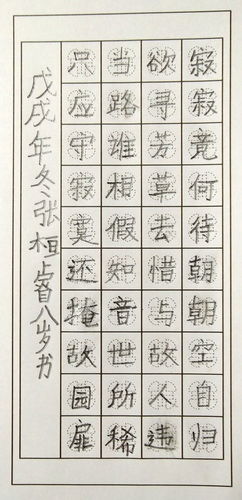 寂寂竟何待朝朝空自归
欲寻芳草去惜与故人违
当路谁相假知音世所稀
只应守寂寞还掩故园扉
戊戌年冬张桓睿八岁书